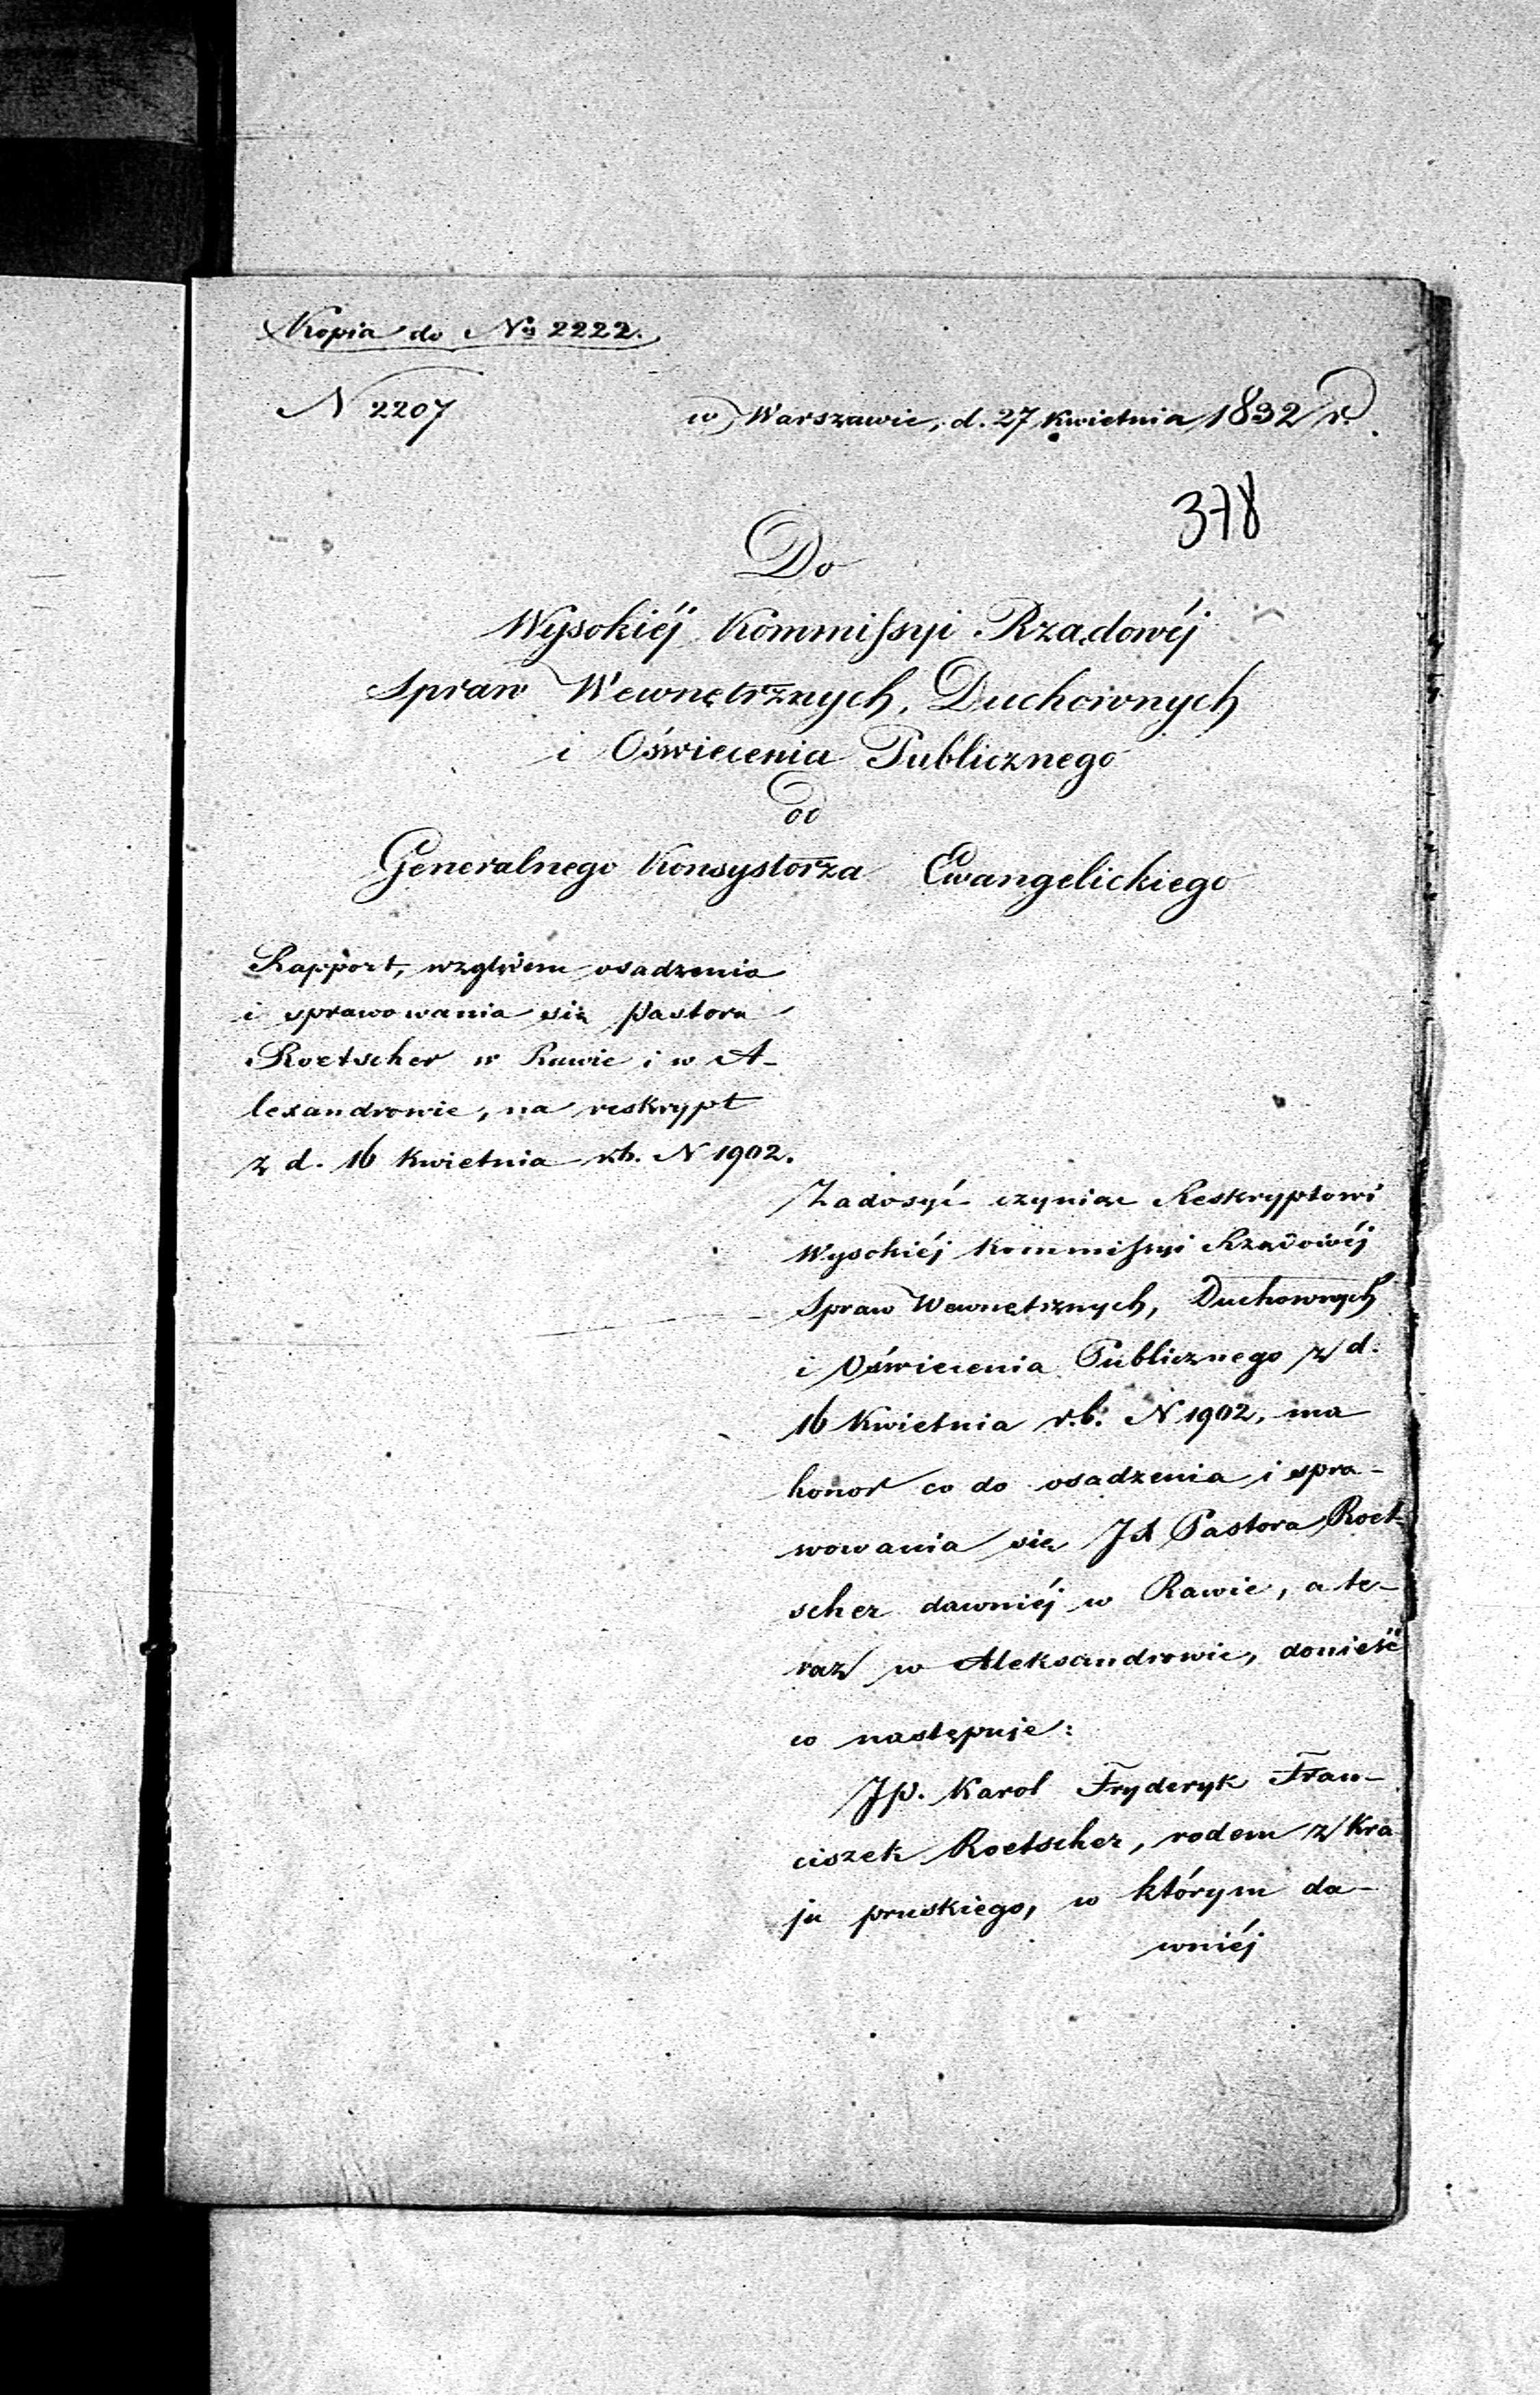 Kopia do No 2222.
N 2207
w Warszawie, d. 27 Kwietnia 1832 r.
378
Do
Wysokiéj Kommissyi Rządowéj
Spraw Wewnętrznych, Duchownych
i Oświecenia Publicznego
od
Generalnego Konsystorza Ewangelickiego
Rapport, względem osadzenia
i sprawowania się Pastora
Roetscher w Rawie i w A-
lexandrowie, na reskrypt
z d. 16 Kwietnia r.b. N 1902.
Zadosyć czyniąc Reskryptowi
Wysokiéj Kommissyi Rządowéj
Spraw Wewnętrznych, Duchownych
i Oświecenia Publicznego z d.
16 Kwietnia r.b. N 1902, ma
honor co do osadzenia i spra-
wowania się Pastora Roet-
scher dawniéj w Rawie, a te-
raz w Aleksandrowie, donieść
co następuje:
Jp. Karol Fryderyk Fran-
ciszek Roetscher, rodem z Kra
ju pruskiego, w którym da-
wniéj